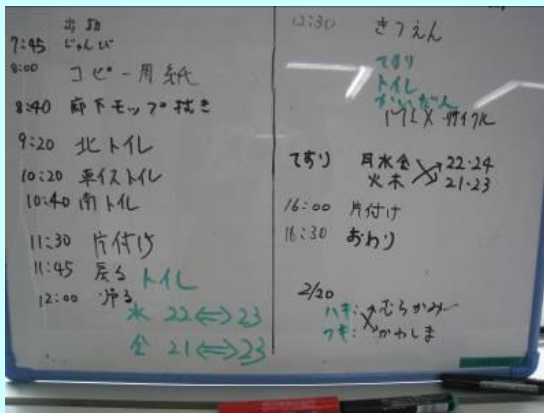 出勤
7:45 じゅんび
8:00 コピー用紙
8:40 廊下モップ拭き
9:20 北トイレ
10:20 車イストイレ
10:40 南トイレ
11:30 片付け
11:45 戻る
12:00 帰る
トイレ
水 22⇔23
金 21⇔23
12:30 きつえん
てすり
トイレ
かいだん
てすり 月水金 22・24
火木 21・23
16:00 片付け
16:30 おわり
2/20
ハキ: むらかみ
フキ: かわしま